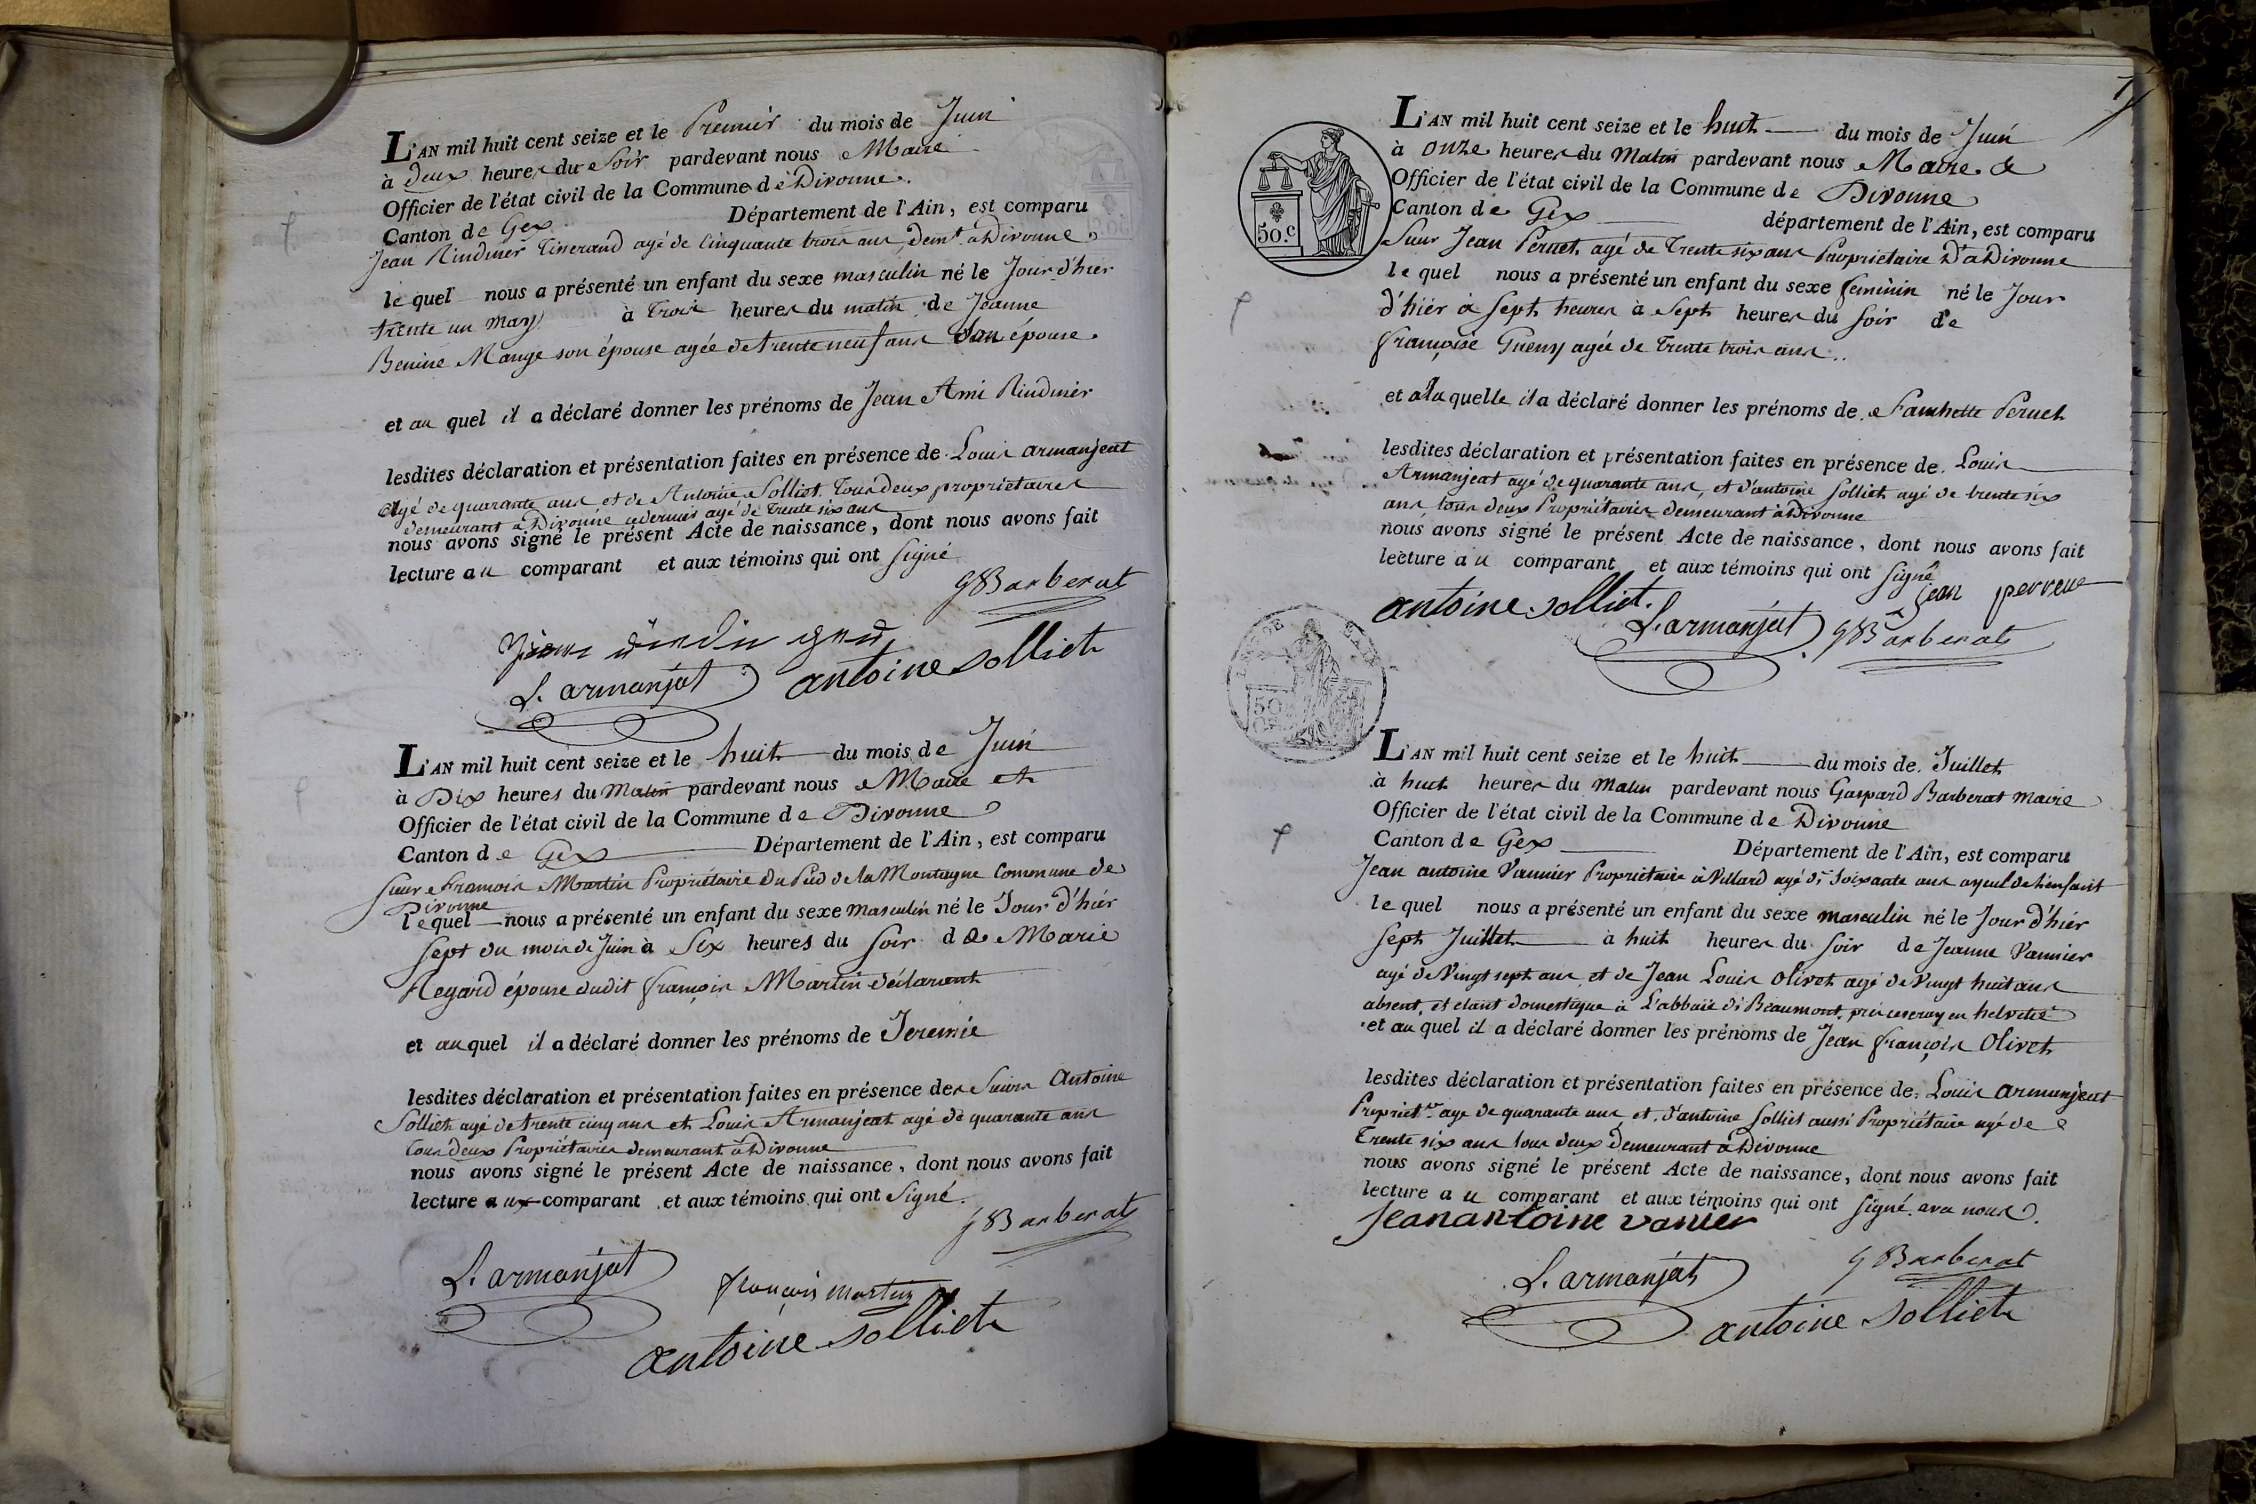 L'AN mil huit cent seize et le Premier du mois de Juin
à deux heures du Soir pardevant nous Maire
Officier de l'état civil de la Commune de Divonne
Canton de Gex Département de l'Ain, est comparu
Jean Rindiner Tisserand agé de Cinquante trois ans, demt. à Divonne
le quel nous a présenté un enfant du sexe masculin né le Jour d'hier
trente un may à Trois heures du matin de Jeanne
Benine Mange son épouse agée de trente neuf ans son épouse
et au quel il a déclaré donner les prénoms de Jean Ami Rindiner
lesdites déclaration et présentation faites en présence de Louis armanjeat
agé de quarante ans et de Antoine Solliet Tous deux propriétaires
demeurant à Divonne agé de Trente six ans
nous avons signé le présent Acte de naissance, dont nous avons fait
lecture au comparant et aux témoins qui ont signé
GBarberat
L. armanjat antoine solliet
L'AN mil huit cent seize et le huit du mois de Juin
à Dix heures du Matin pardevant nous Maire et
Officier de l'état civil de la Commune de Divonne
Canton de Gex Département de l'Ain, est comparu
Sieur François Martin Propriétaire du Pied de la Montagne Commune de
Divonne
le quel nous a présenté un enfant du sexe masculin né le Jour d'hier
sept du mois de Juin à Six heures du soir de Marie
Regard épouse dudit françois Martin déclarant
et au quel il a déclaré donner les prénoms de Jeremie
lesdites déclaration et présentation faites en présence des Sieurs Antoine
Solliet agé de trente cinq ans et Louis Armanjeat agé de quarante ans
tous deux Propriétaires demeurant à Divonne
nous avons signé le présent Acte de naissance, dont nous avons fait
lecture aux comparant et aux témoins qui ont Signé.
GBarberat
L. armanjat françois martin
antoine solliet
7
L'AN mil huit cent seize et le huit du mois de Juin
à onze heures du Matin pardevant nous Maire &
Officier de l'état civil de la Commune de Divonne
Canton de Gex département de l'Ain, est comparu
50.c
Sieur Jean Pernet, agé de Trente six ans Propriétaire D'à Divonne
le quel nous a présenté un enfant du sexe feminin né le Jour
d'hier à sept heures à Sept heures du soir de
françoise Gueny agée de Trente trois ans
et à la quelle il a déclaré donner les prénoms de Fanchette Pernet
lesdites déclaration et présentation faites en présence de Louis
Armanjeat agé de quarante ans, et d'antoine solliet agé de trente six
ans tous deux Propriétaires demeurant à Divonne
nous avons signé le présent Acte de naissance, dont nous avons fait
lecture au comparant et aux témoins qui ont signé
jean
antoine solliet. L. armanjat GBarberat
50
L'AN mil huit cent seize et le huit du mois de Juillet
à huit heures du Matin pardevant nous Gaspard Barberat Maire
Officier de l'état civil de la Commune de Divonne
Canton de Gex Département de l'Ain, est comparu
Jean antoine Vannier Propriétaire à Villard agé de soixante ans ayeul de l'enfant
le quel nous a présenté un enfant du sexe masculin né le Jour d'hier
sept Juillet à huit heures du soir de Jeanne Vannier
agé de Vingt sept ans et de Jean Louis Olivet agé de Vingt huit ans
absent, et étant domestique à L'abbaie de Beaumont, près en helvetie
et au quel il a déclaré donner les prénoms de Jean françois Olivet
lesdites déclaration et présentation faites en présence de Louis armanjeat
Propriétre agé de quarante ans et d'antoine Solliet aussi Propriétaire agé de
Trente six ans tous deux Demeurant à Divonne
nous avons signé le présent Acte de naissance, dont nous avons fait
lecture au comparant et aux témoins qui ont signé avec nous.
Jean antoine vanier
L. armanjat GBarberat
antoine solliet